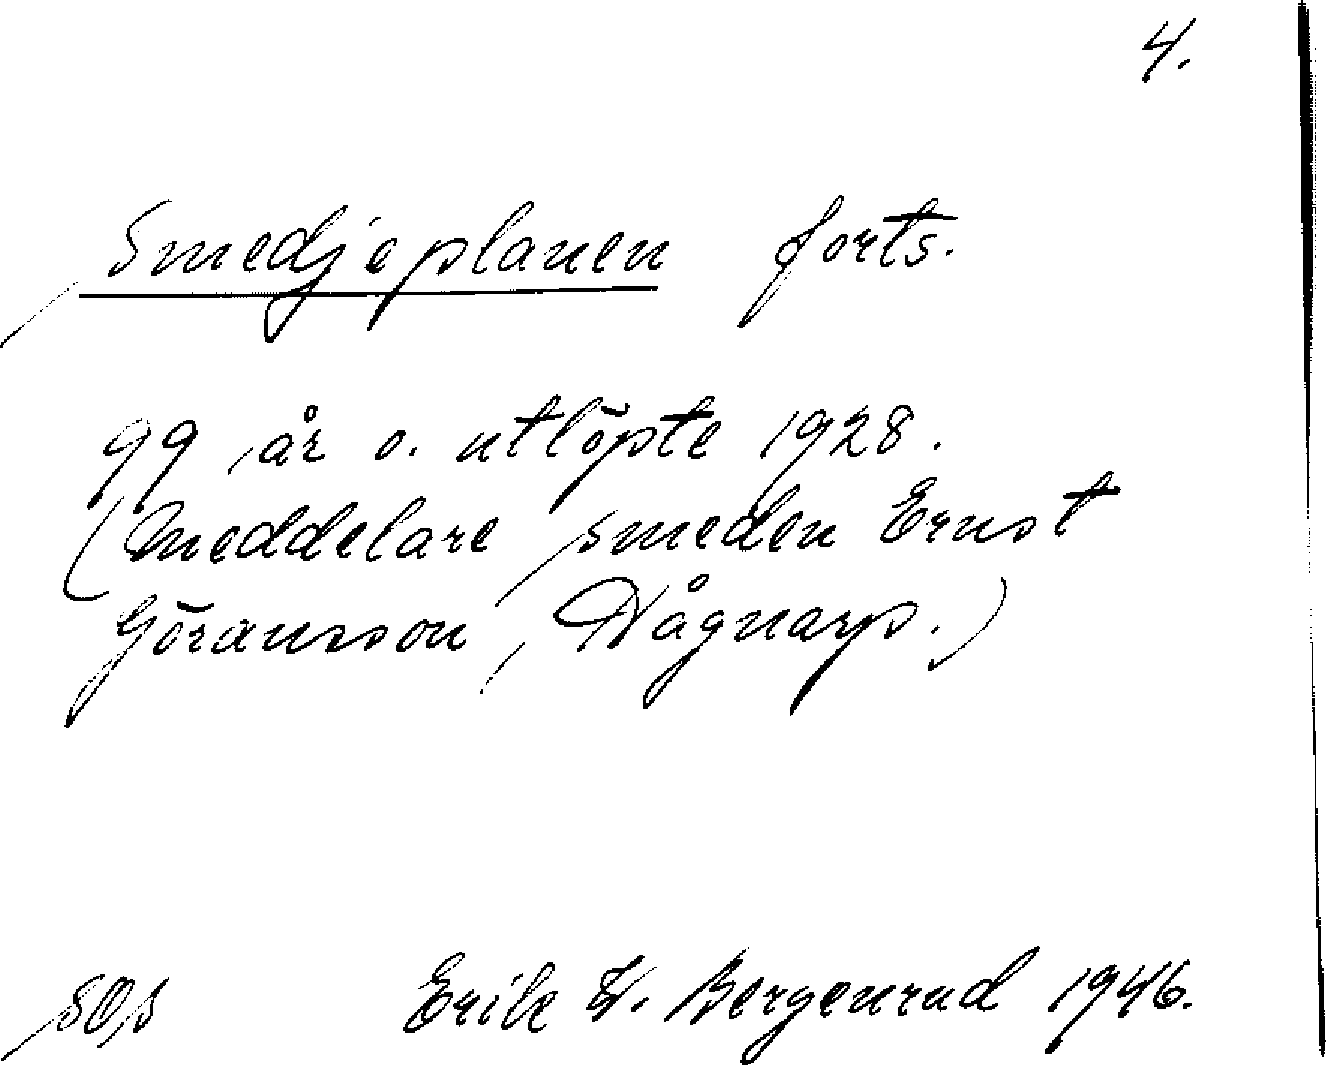 4.
Smedjeplanen forts.
99 år o. utlöpte 1928.
(Meddelare smeden Ernst
Göransson, Dågnarps.)
Erik W. Bergenrud 1946.